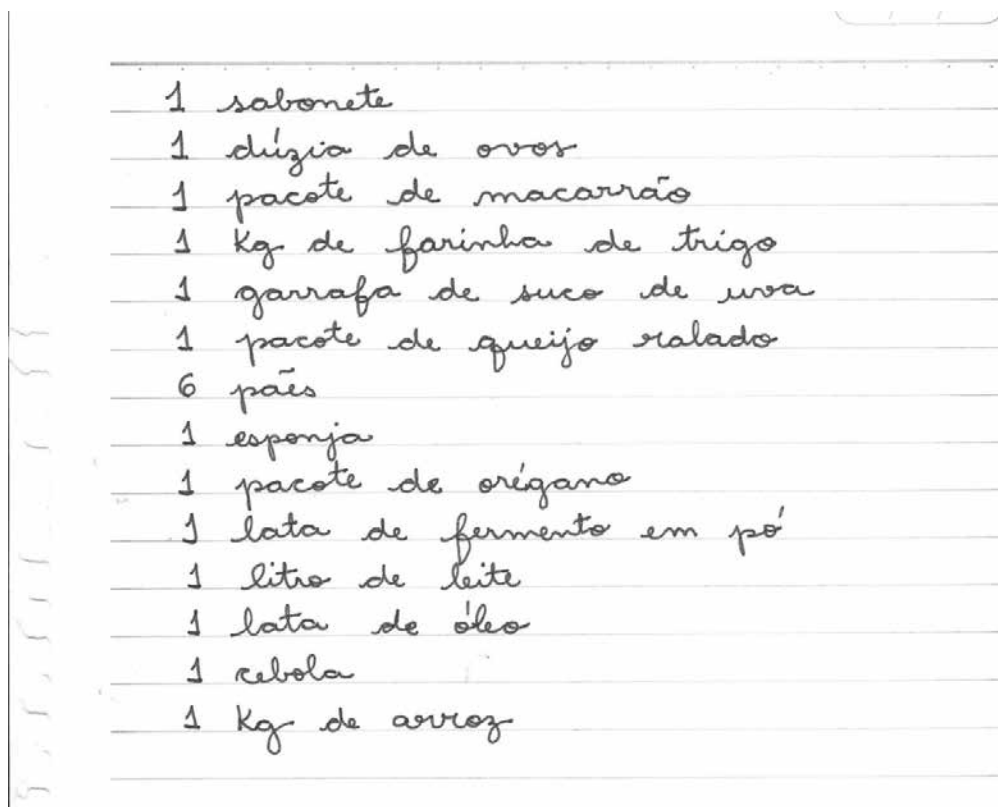 1 sabonete
1 dúzia de ovos
1 pacote de macarrão
1 Kg de farinha de trigo
1 garrafa de suco de uva
1 pacote de queijo ralado
6 pães
1 esponja
1 pacote de orégano
1 lata de fermento em pó
1 litro de leite
1 lata de óleo
1 cebola
1 Kg de arroz